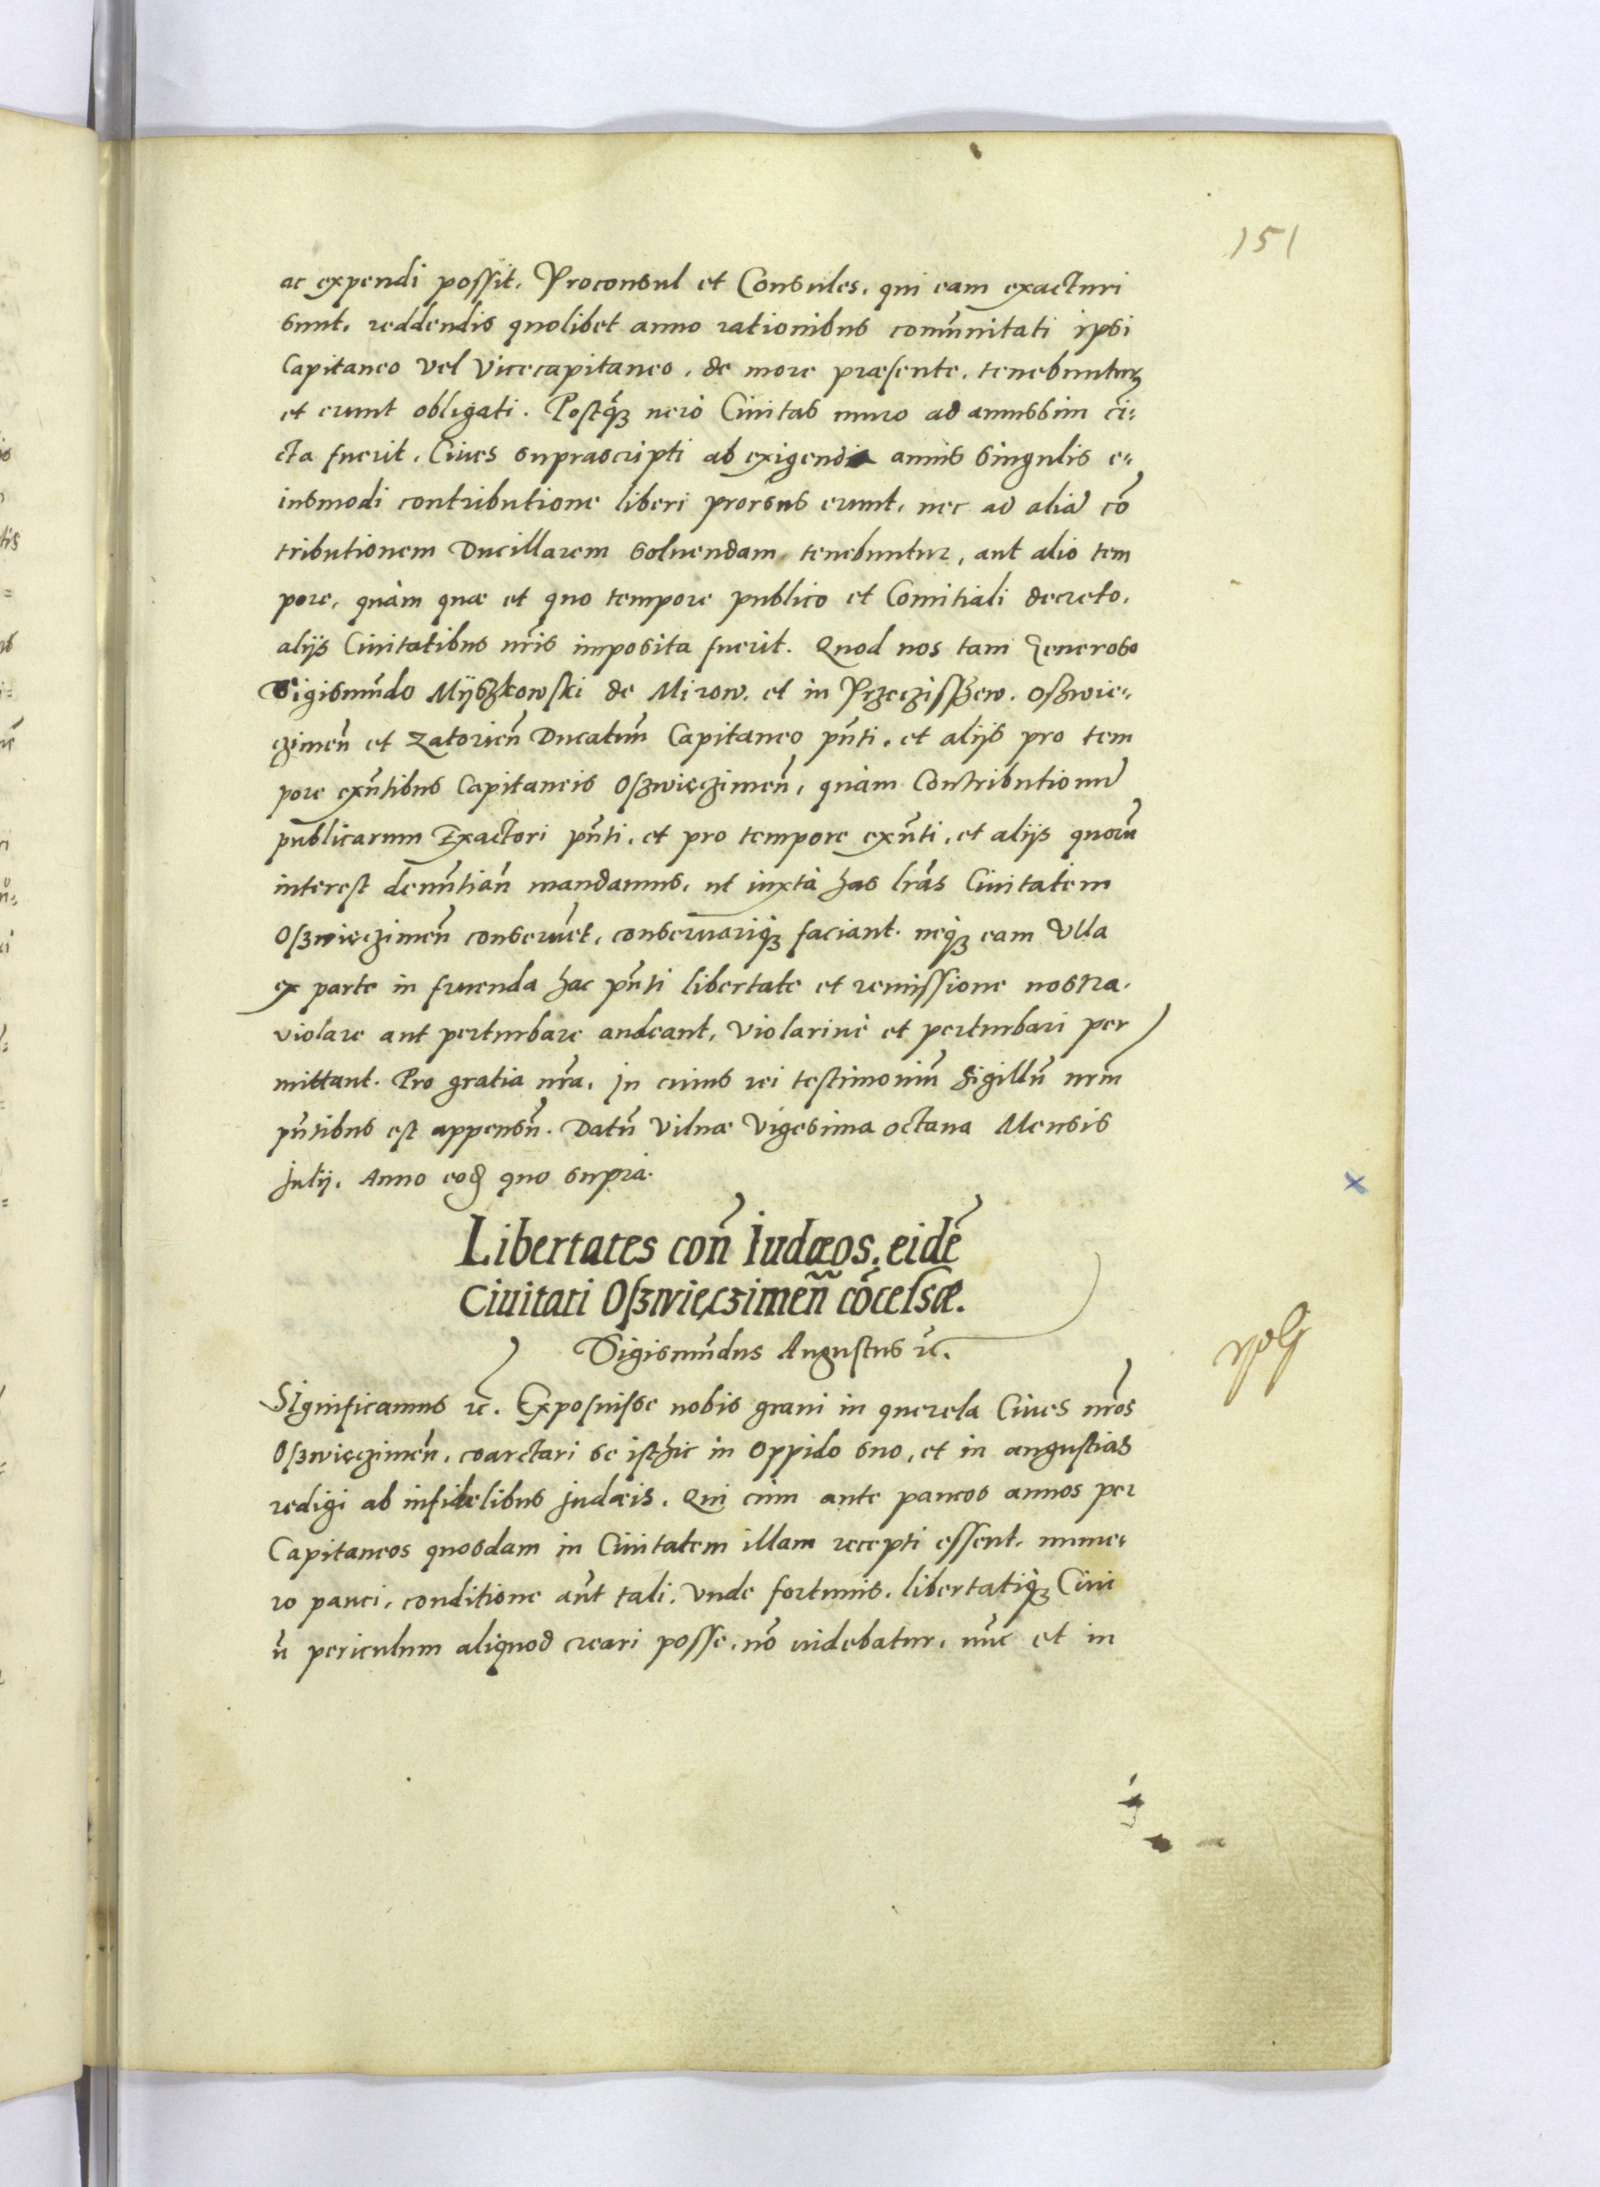 151
ac expendi possit. Proconsul et Consules, qui eam exacturi
sunt, reddendis quolibet anno rationibus comũnitati ipsi
Capitaneo vel Vicecapitaneo, de more præsente, tenebuntur
et erunt obligati. Postq̃ȝ uerò Ciuitas muro ad amussim cĩ:
cta fuerit, Ciues suprascripti ab exigenda annis singulis e:
iusmodi contributione liberi prorsus erunt, nec ad aliã cõ
tributionem Ducillarem soluendam tenebuntur, aut alio tem
pore, quàm quæ et quo tempore publico et Comitiali decreto,
alijs Ciuitatibus nr̃is imposita fuerit. Quod nos tam Generoso
Sigismũdo Mÿszkowski de Mirow, et in Przeciszew, Oszwie:
czimeñ et Zatorieñ Ducatuũ Capitaneo pñti, et alijs pro tem
pore exñtibus Capitaneis Oszwięczimeñ, quàm Contributionũ
publicarum Exactori pñti, et pro tempore exñti, et alijs quorũ
interest denũtiañ mandamus, ut iuxta has lr̃as Ciuitatem
Oszwięczimeñ conseruẽt, conseruariq̃ȝ faciant. neq̃ȝ eam Vlla
ex parte in fruenda hac pñti libertate et remissione nostra,
violare aut perturbare audeant, Violariuè et perturbari per
mittant. Pro gratia nr̃a. In cuius rei testimoniũ Sigillũ nrm̃
pñtibus est appensũ. Datũ Vilnæ Vigesima octaua Mensis
Julij. Anno eod quo suprà.
Libertates coñ Iudæos, eidẽ
Ciuitati Oszwięczimeñ cõcelsæ.
Sigismũdus Augustus rc̃.
Significamus rc̃. Exposuisse nobis graui in querela Ciues nr̃os
Oszwięczimeñ, coarctari se isthic in Oppido suo, et in angustias
redigi ab infidelibus Judæis. Qui cùm ante paucos annos per
Capitaneos quosdam in Ciuitatem illam recepti essent, nume:
ro pauci, conditione aũt tali, Vnde fortunis, libertatiq̃ȝ Ciui
ũ periculum aliquod creari posse, nõ uidebatur, nũc et in